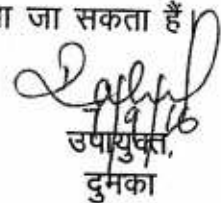 ा जा सकता है
7/9/16
उपायुक्त,
दुमका